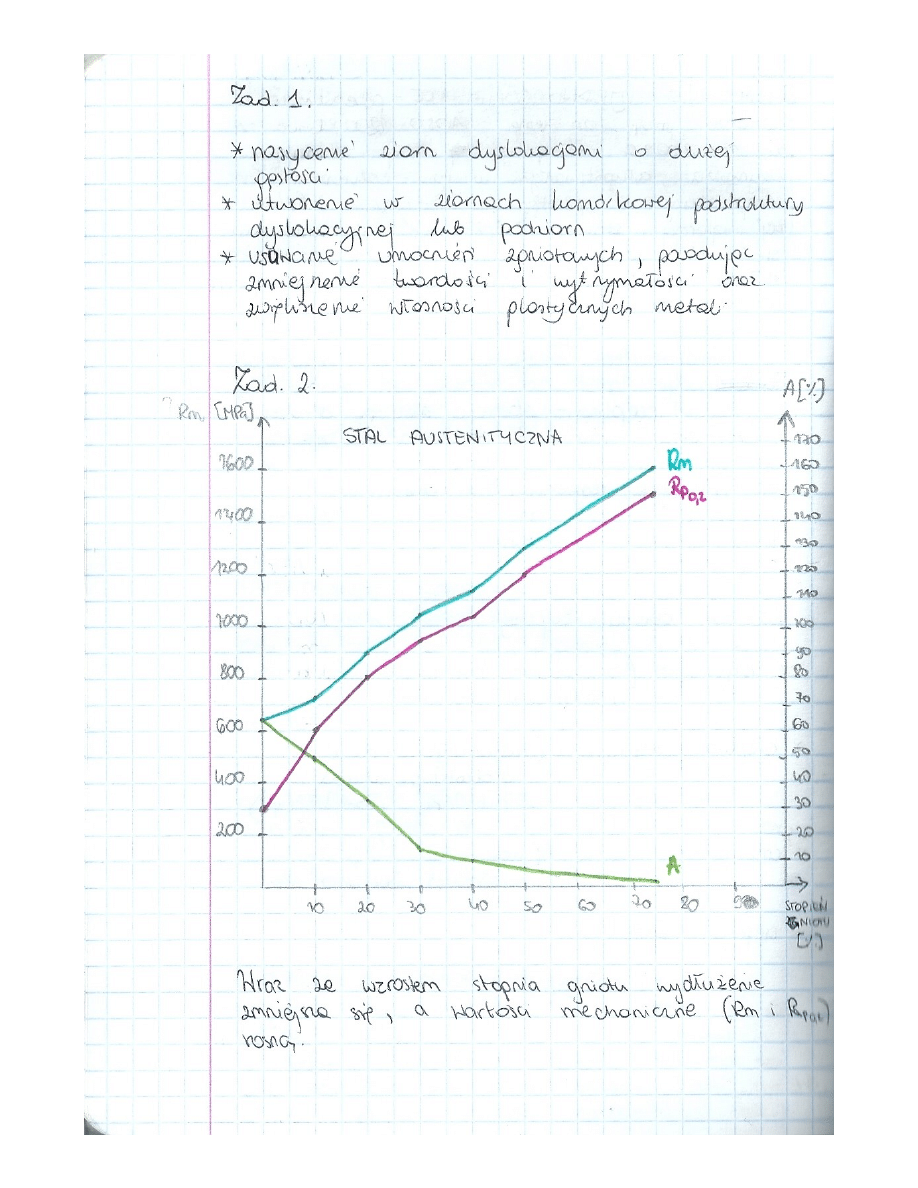 Zad. 1.
* nasycenie ziarn dyslokacjami o dużej
gęstości
* utworzenie w ziarnach komórkowej podstruktury
dyslokacyjnej lub podziarn
* usuwanie umocnień zgniotowych, powodując
zmniejszenie twardości i wytrzymałości oraz
zwiększenie własności plastycznych metali
Zad. 2.
Rm, [MPa]
A[%]
STAL AUSTENITYCZNA
Rm
Rp0,2
A
1600
1400
1200
1000
800
600
400
200
170
160
150
140
130
120
110
100
90
80
70
60
50
40
30
20
10
10 20 30 40 50 60 70 80 90
STOPIEŃ
GNIOTU
[%]
Wraz ze wzrostem stopnia gniotu wydłużenie
zmniejsza się, a wartości mechaniczne (Rm i Rp0,2)
rosną.